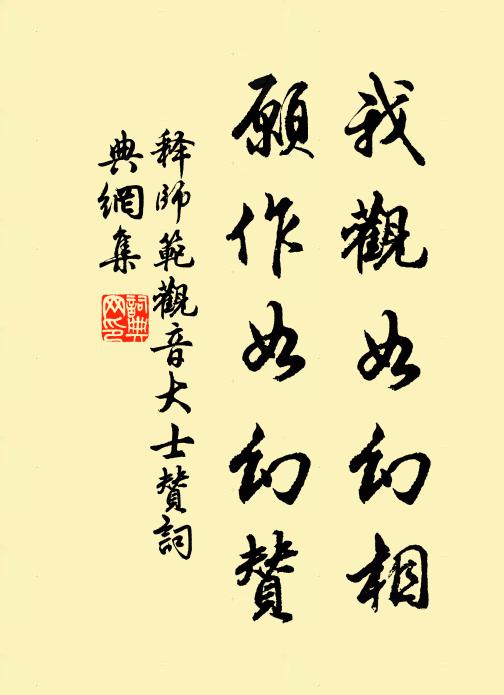 我觀如幻相
願作如幻贊
释師範觀音大士贊詞
典網集
詞典網印